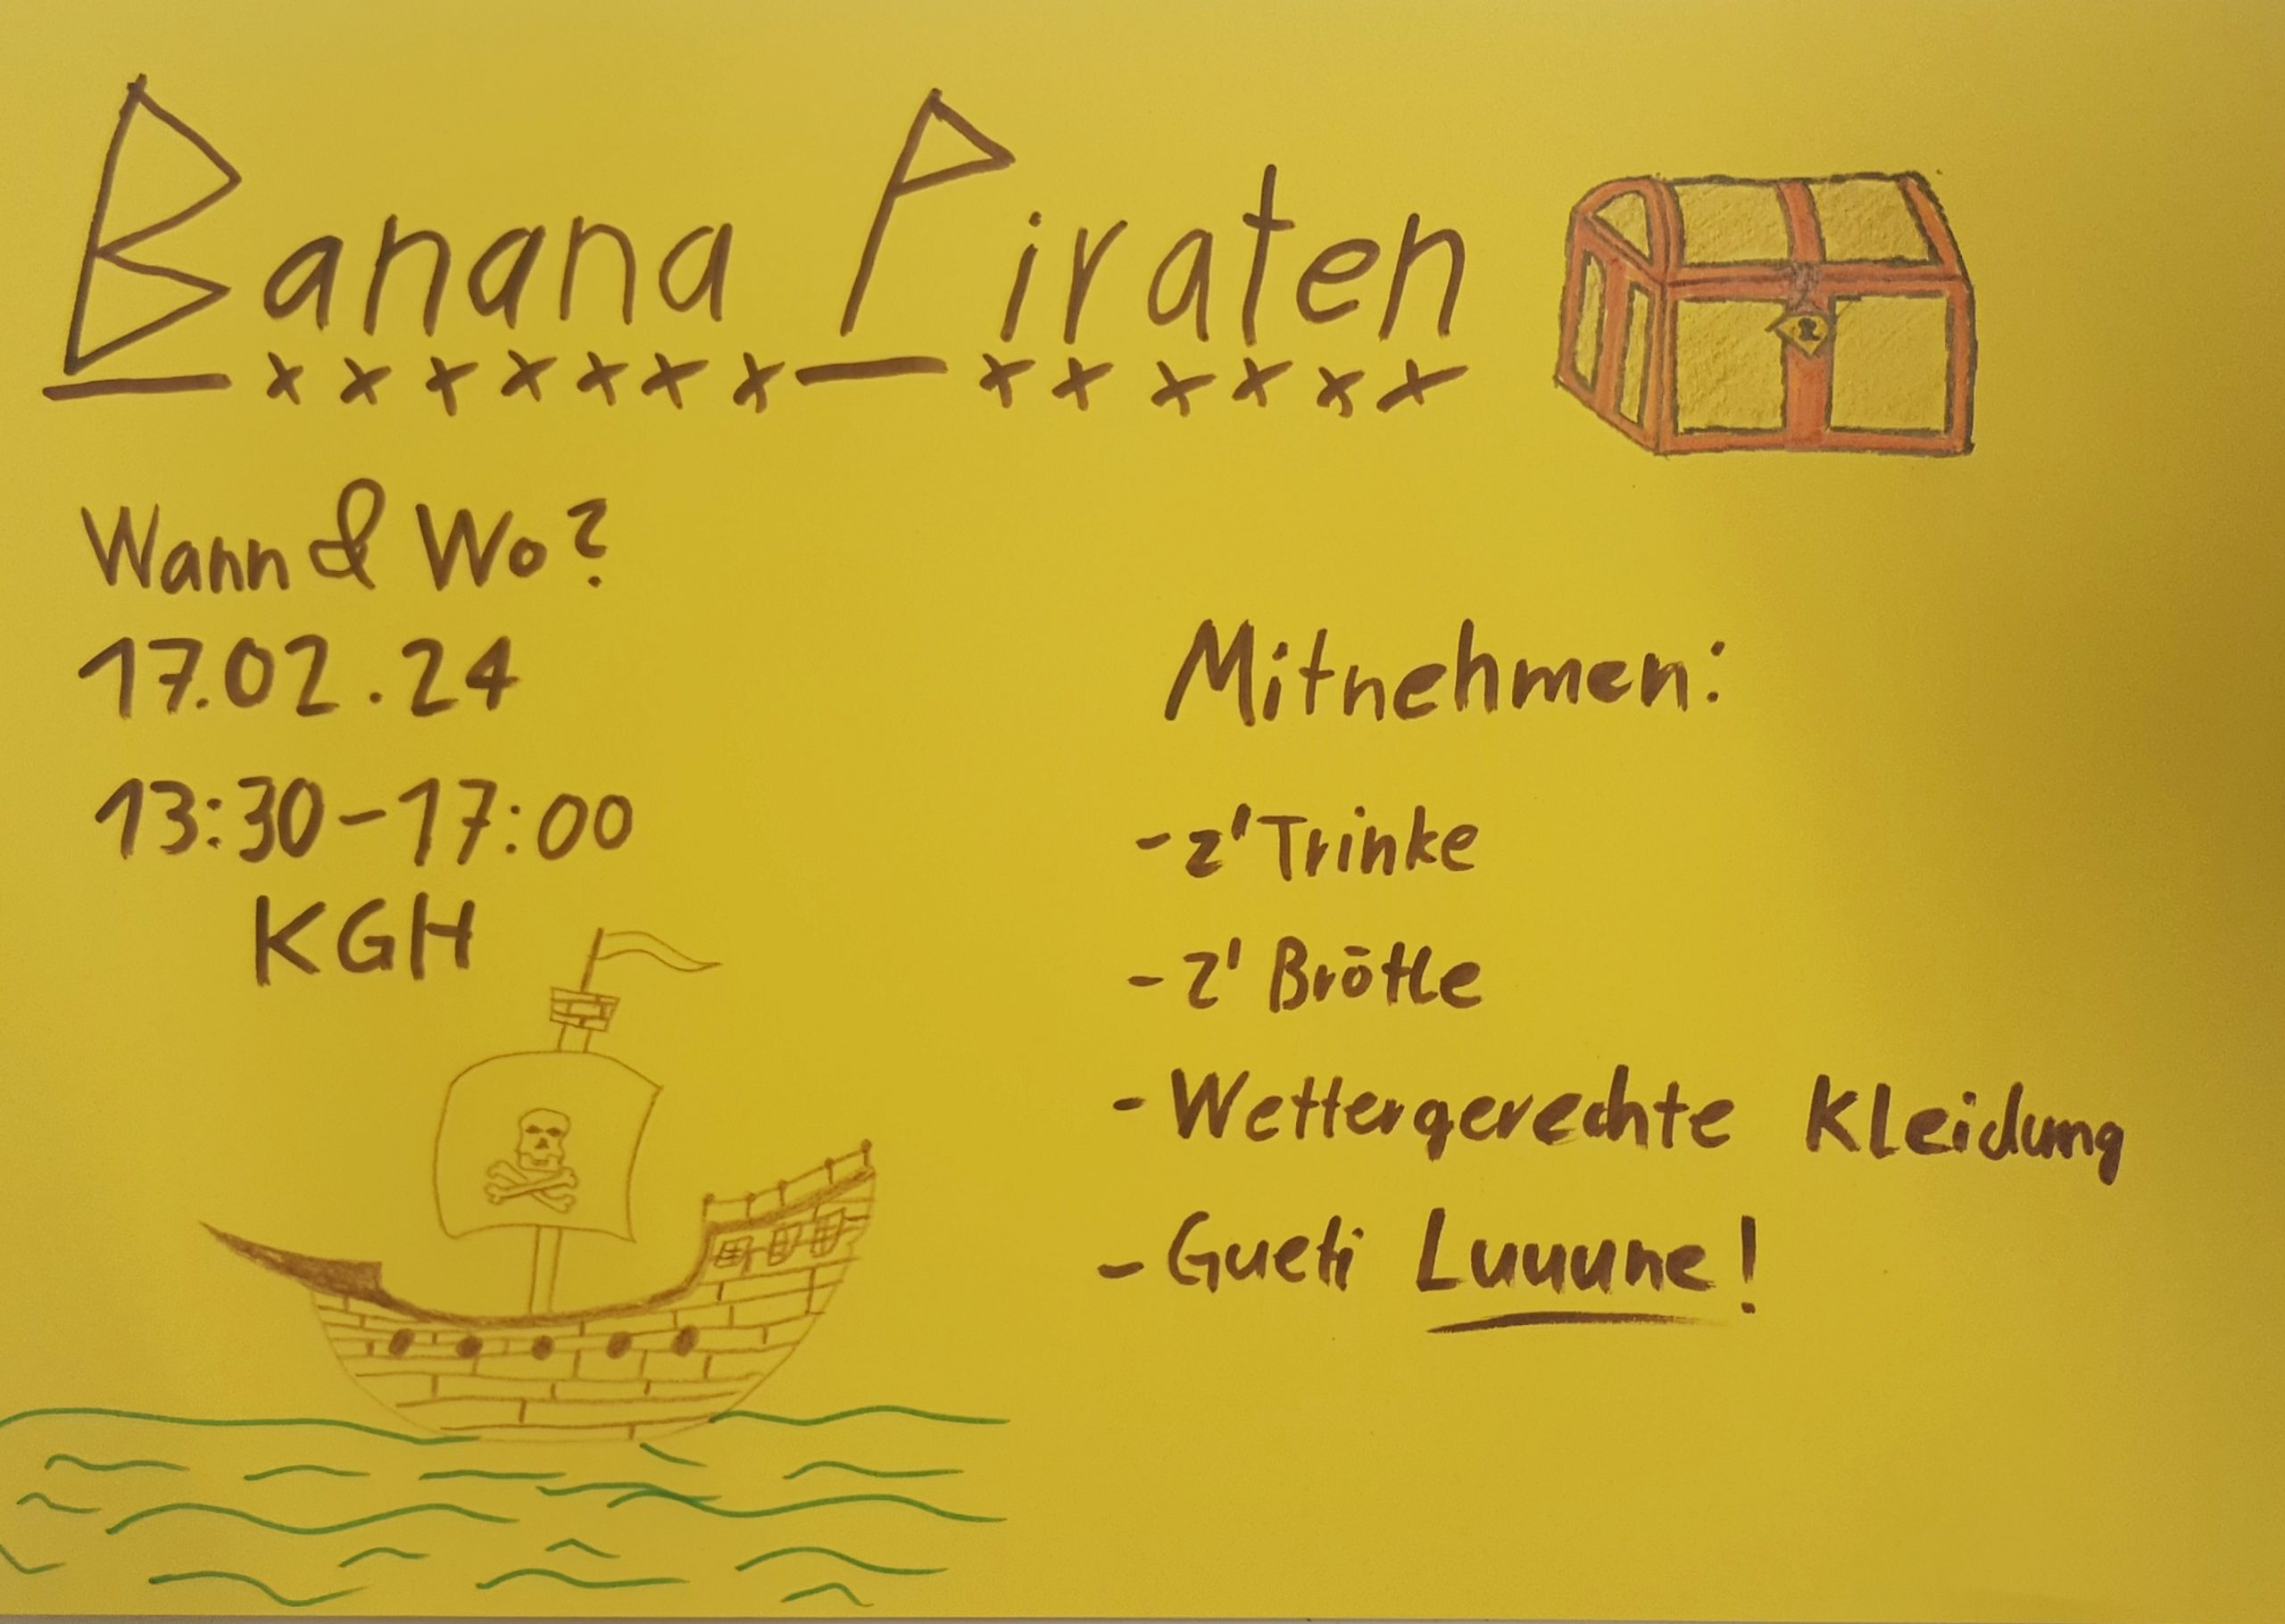 Banana Piraten
Wann & Wo?
17.02.24
13:30-17:00
KGH
Mitnehmen:
- z'Trinke
- z'Brötle
- Wettergerechte Kleidung
- Gueti Luuune!